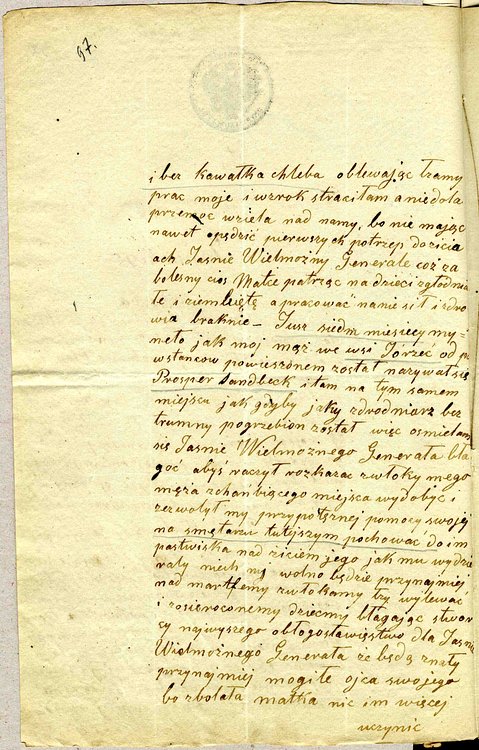 97.
i bez kawałka chleba oblewając łzamy
prac moje i wzrok straciłam a niedola
przemoc wzieła nad namy, bo nie mając
nawet opędzić pierwszych potrzep do zicia
ach Jasnie Wielmozny Generale coż za
bolesny cios Matce patrząc na dzieci zgłodnia
łe i ziembiętę a pracować namie sił i zdro
wia braknie – Jusz siedm miesięcy my-
neło jak moj mąż we wsi Jorzec od po
wstancow powieszonem został nazywał się
Prosper Sandbeck i tam na tym samem
miejscu jak gdyby jaky zdrodniarz bez
trumny pogrzebion został więc osmielam
się Jasnie Wielmoznego Generała bła
goć abyś raczył rozkazac zwłoky mego
męża z chańbiącego miejsca wydobyć i
zezwolył my przypotęznej pomocy swojej
na smętarzu tutejszym pochować do im
pastwiska nad ziciem jego jak mu wydzie
rały niech my wolno będzie przynajmiej
nad martfemy zwłokamy łzy wylewać
i rosieroconemy dziecmy błagając stwor
cy najwyszego obłogosławięstwo dla Jasnie
Wielmoznego Generała że będą znały
przynajmiej mogiłe ojca swojego
bo zbolała matka nic im więcej
uczynic